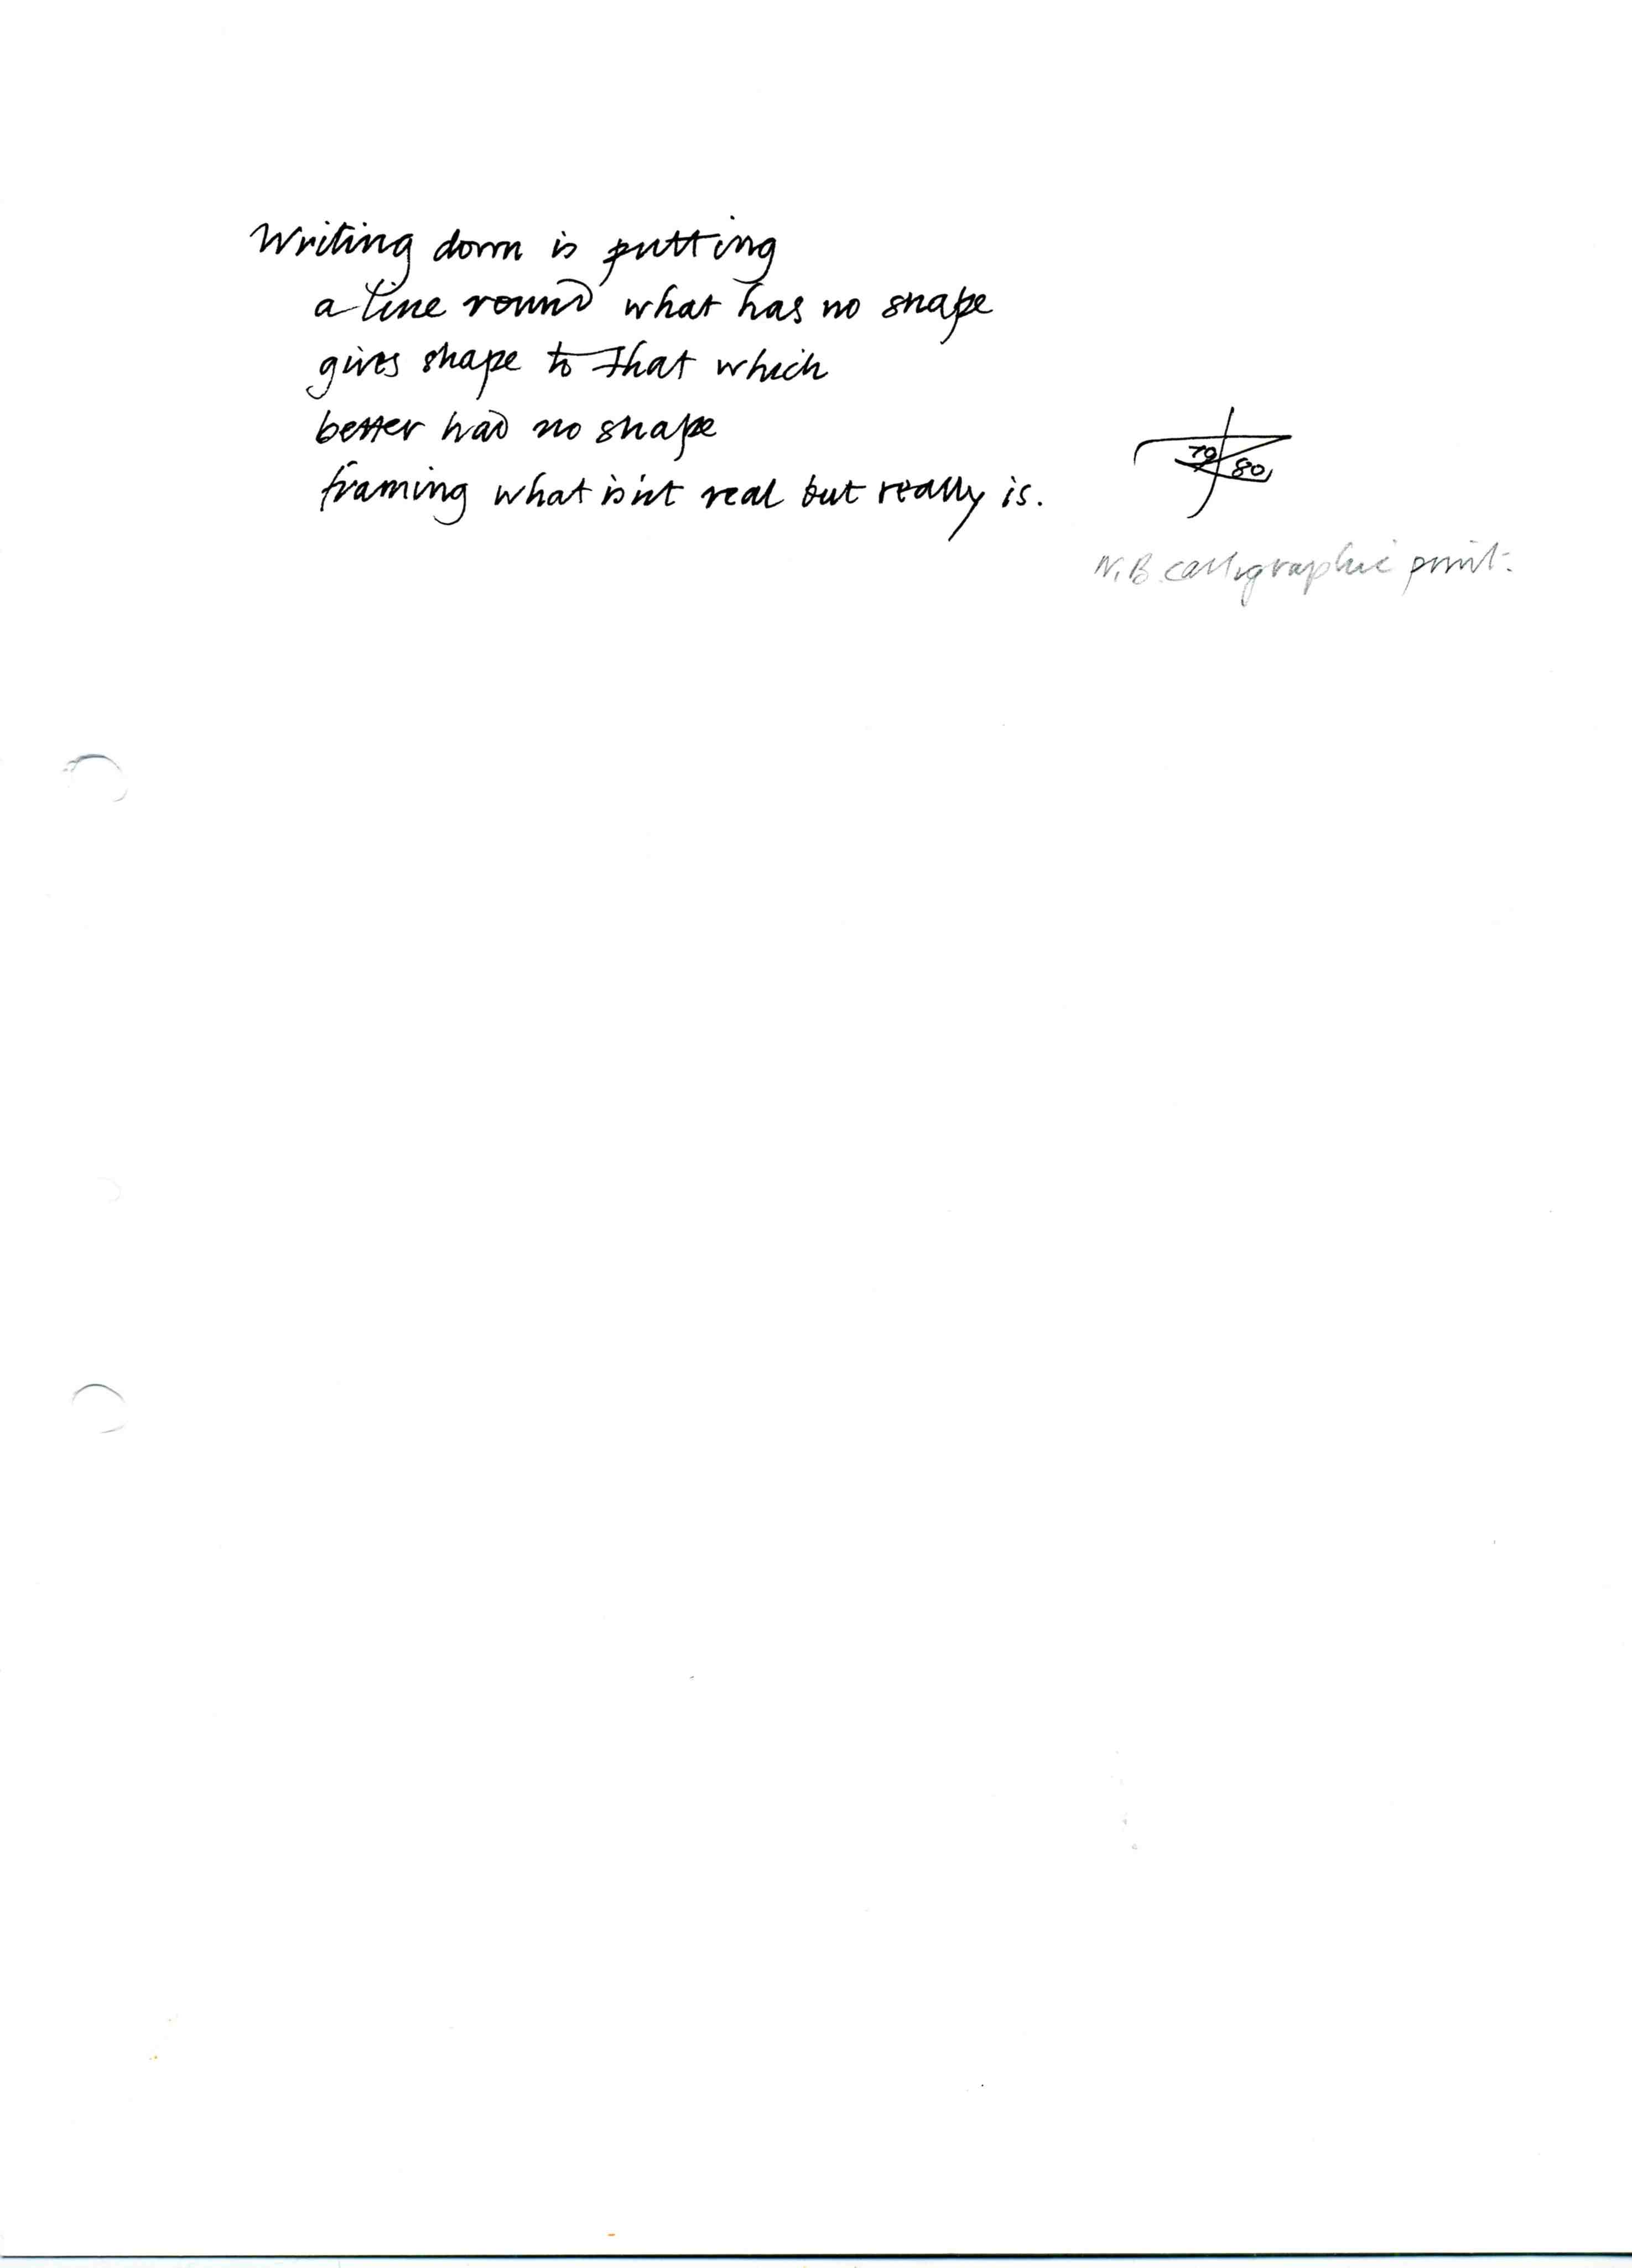 Writing down is putting
a line round what has no shape
gives shape to that which
better had no shape
framing what isn't real but really is.
79 80
N.B. calligraphic print.